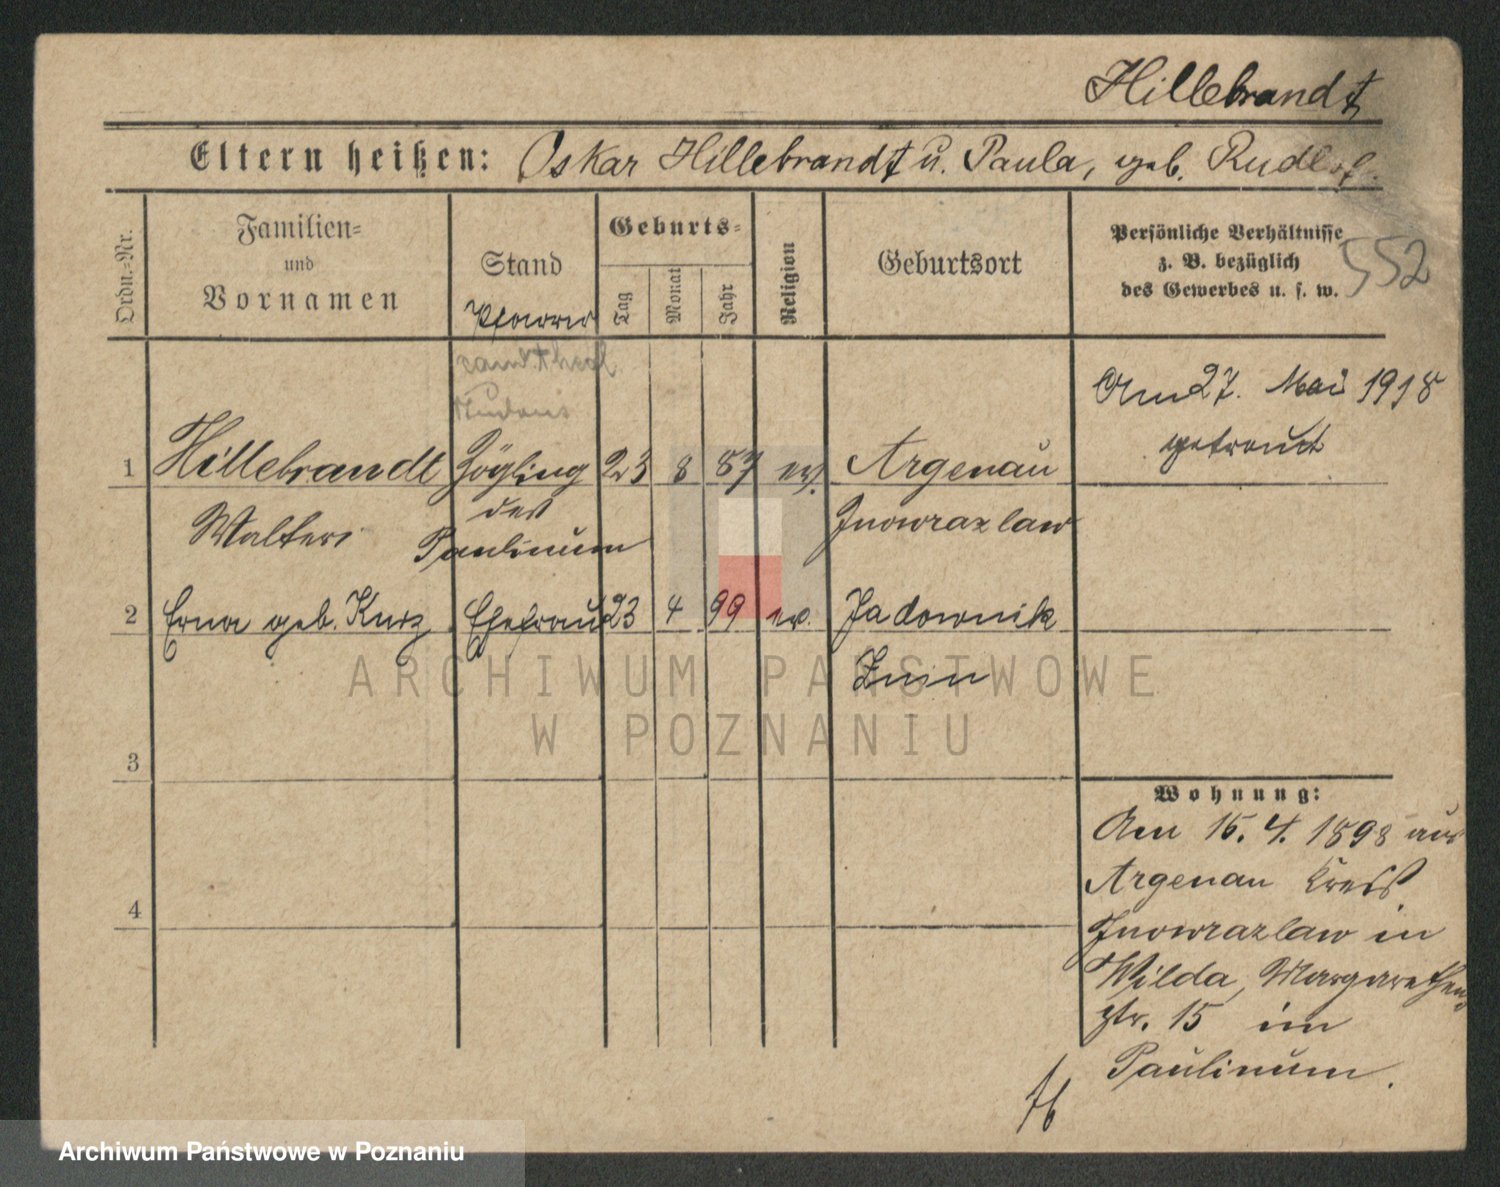 Hillebrandt
Eltern heißen: Oskar Hillebrandt u. Paula, geb.
Ordn.=Nr.
Familien=
und
Vornamen
Stand
Pfarrer
Geburts=
Tag
Monat
Jahr
Religion
Geburtsort
Persönliche Verhältnisse
z. B. bezüglich
des Gewerbes u. s. w.
552
cand. theol
Am 27. Mai 1918
getraut
1 Hillebrandt Zögling 23 8 87 ev. Argenau
Walter des Inowrazlaw
Paulinum
2 Erna geb. Kurz Ehefrau 23 4 99 ev. Jadownik
Znin
3
4
Wohnung:
Am 15. 4. 1898 aus
Argenau Kreis
Inowrazlaw in
Wilda, Margarethen
str. 15 im
Paulinum.
ARCHIWUM PAŃSTWOWE
W POZNANIU
Archiwum Państwowe w Poznaniu